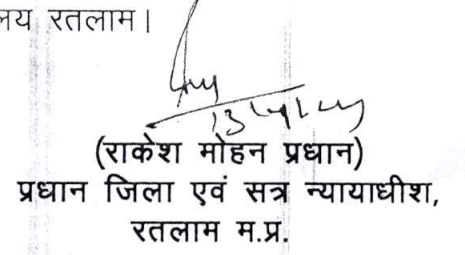 लय रतलाम।
(राकेश मोहन प्रधान)
प्रधान जिला एवं सत्र न्यायाधीश,
रतलाम म.प्र.